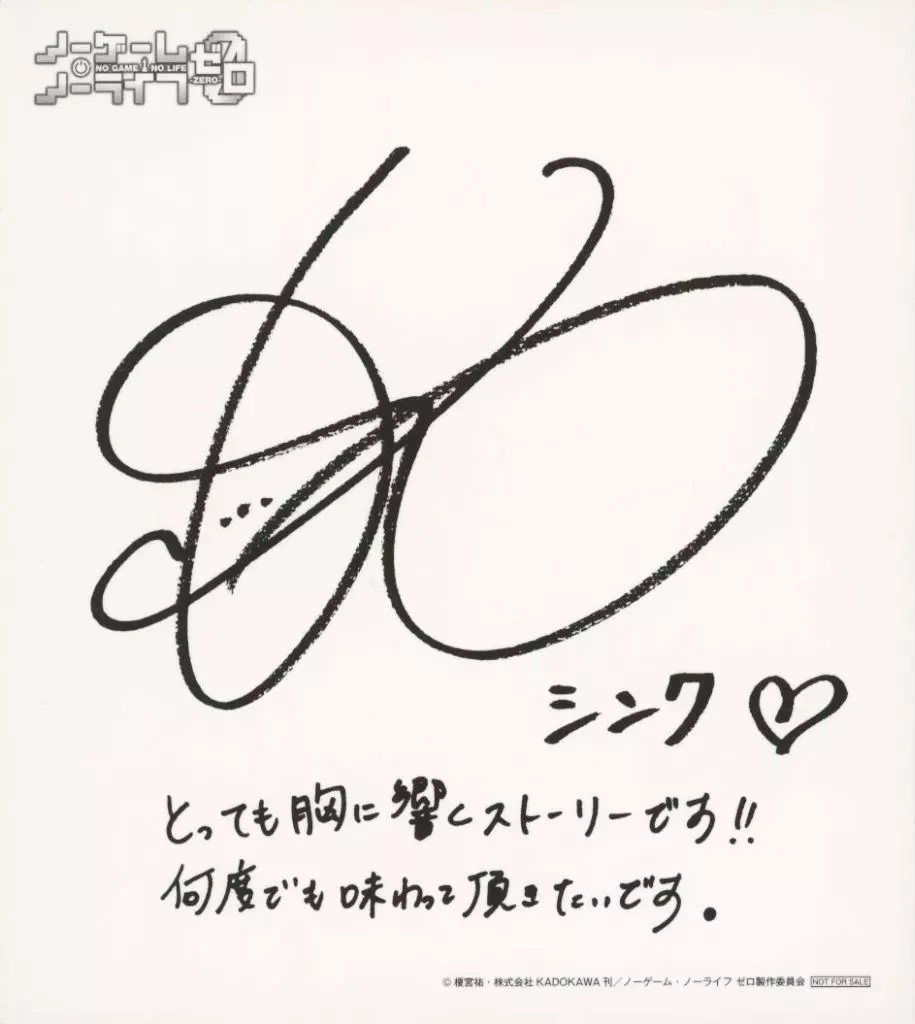 ノーゲーム
NO GAME NO LIFE
ノーライフ ゼロ
-ZERO-
シンク♡
とっても胸に響くストーリーです!!
何度でも味わって頂きたいです.
© 榎宮祐・株式会社 KADOKAWA 刊／ノーゲーム・ノーライフ ゼロ製作委員会 NOT FOR SALE